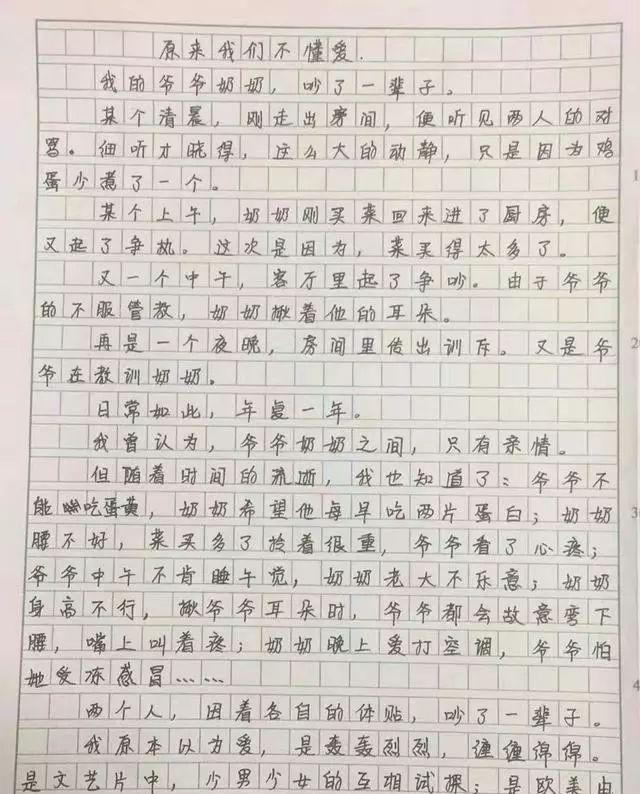 原来我们不懂爱.
我的爷爷奶奶，吵了一辈子。
某个清晨，刚走出房间，便听见两人的对
骂。细听才晓得，这么大的动静，只是因为鸡
蛋少煮了一个。
某个上午，奶奶刚买菜回来进了厨房，便
又起了争执。这次是因为，菜买得太多了。
又一个中午，客厅里起了争吵。由于爷爷
的不服管教，奶奶揪着他的耳朵。
再是一个夜晚，房间里传出训斥。又是爷
爷在教训奶奶。
日常如此，年复一年。
我曾认为，爷爷奶奶之间，只有亲情。
但随着时间的流逝，我也知道了：爷爷不
能吃蛋黄，奶奶希望他每早吃两片蛋白；奶奶
腰不好，菜买多了拎着很重，爷爷看了心疼；
爷爷中午不肯睡午觉，奶奶老大不乐意；奶奶
身高不行，揪爷爷耳朵时，爷爷都会故意弯下
腰，嘴上叫着疼；奶奶晚上爱打空调，爷爷怕
她受冻感冒……
两个人，因着各自的体贴，吵了一辈子。
我原本以为爱，是轰轰烈烈，缠缠绵绵。
是文艺片中，少男少女的互相试探；是欧美电